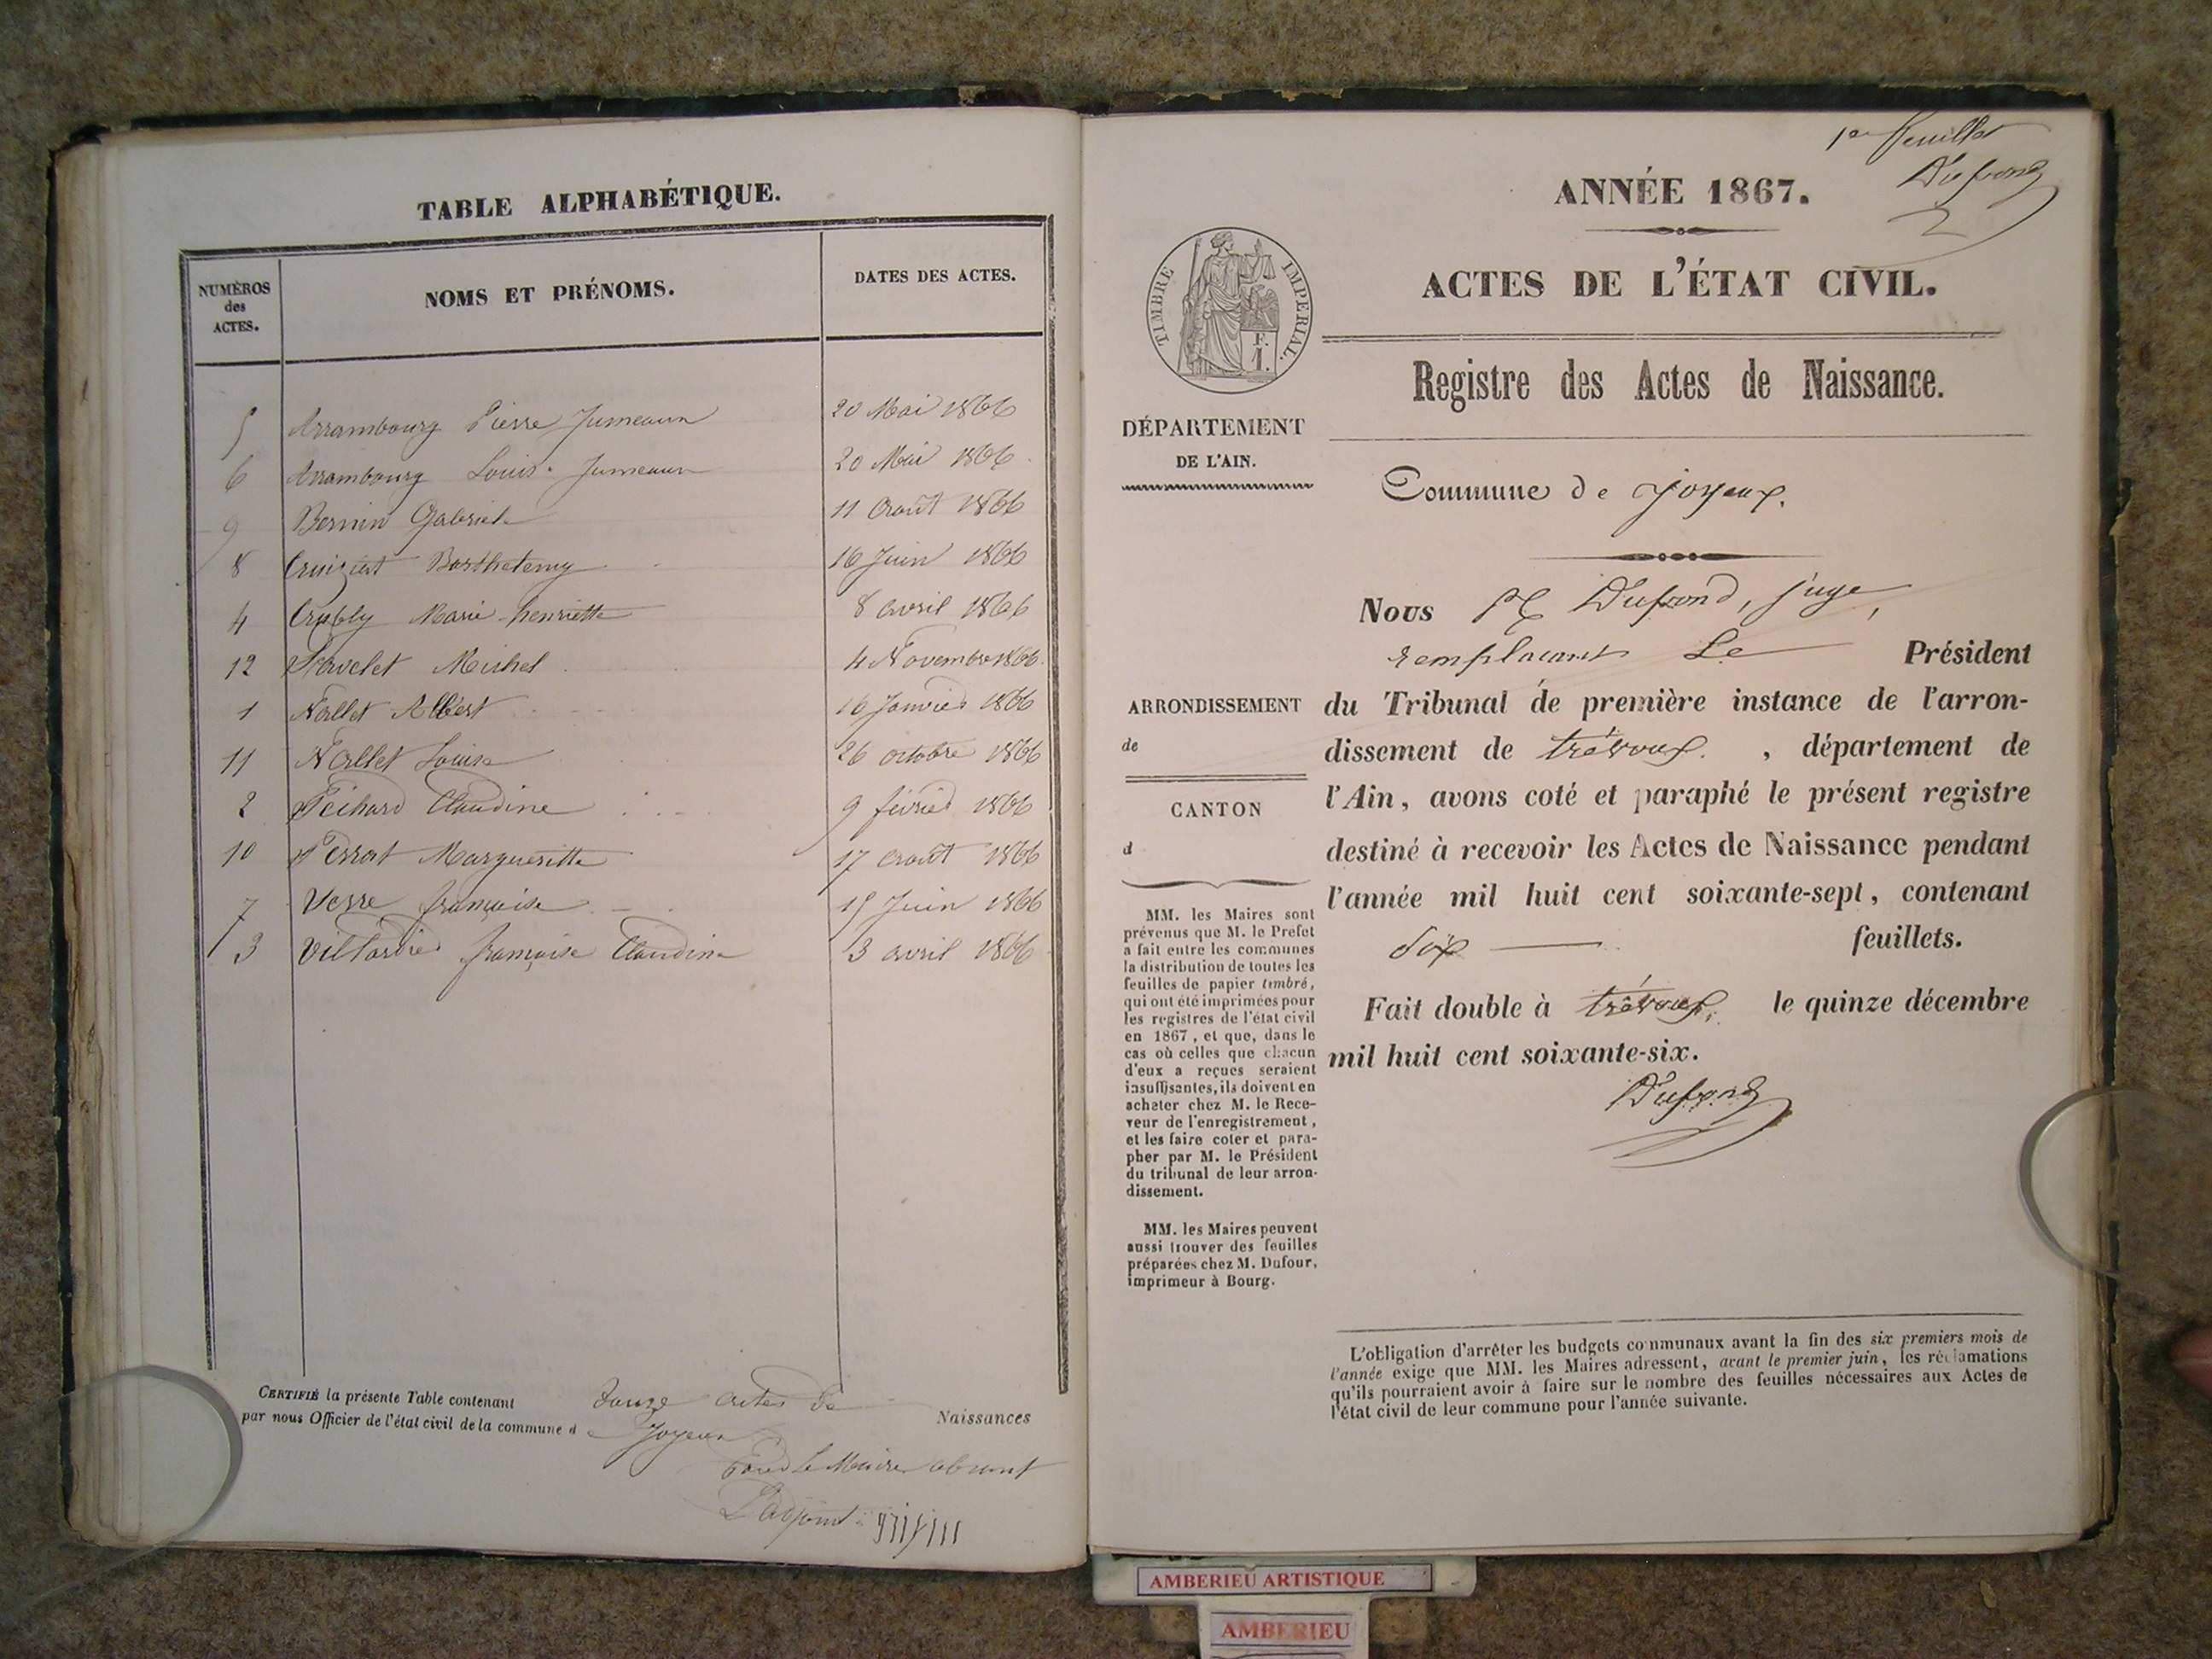 TABLE ALPHABÉTIQUE.
NUMÉROS
des
ACTES.
NOMS ET PRÉNOMS.
DATES DES ACTES.
5 Arrambourg Pierre Jumeaux 20 Mai 1866
6 Arrambourg Louis Jumeaux 20 Mai 1866
9 Bernin Gabriel 11 Août 1866
8 Cruiziat Barthelemy 16 Juin 1866
4 Marie henriette 8 avril 1866
12 Michel 4 Novembre 1866
1 Nallet Albert 16 Janvier 1866
11 Nallet Louise 26 octobre 1866
2 Péchard Claudine 9 février 1866
10 Perrat Margueritte 17 Août 1866
7 Verre françoise 15 Juin 1866
3 françoise Claudine 3 avril 1866
CERTIFIÉ la présente Table contenant Douze actes de Naissances
par nous Officier de l'état civil de la commune d e Joyeux
Pour le Maire absent
L'adjoint
1er feuillet
Dufond
ANNÉE 1867.
ACTES DE L'ÉTAT CIVIL.
TIMBRE IMPÉRIAL.
F.
1.
Registre des Actes de Naissance.
DÉPARTEMENT
DE L'AIN.
Commune de Joyeux.
Nous Dufond, juge,
remplaçant Le Président
du Tribunal de première instance de l'arron-
dissement de trévoux. , département de
l'Ain, avons coté et paraphé le présent registre
destiné à recevoir les Actes de Naissance pendant
l'année mil huit cent soixante-sept, contenant
dix feuillets.
Fait double à trévoux, le quinze décembre
mil huit cent soixante-six.
Dufond
ARRONDISSEMENT
de
CANTON
d
MM. les Maires sont
prévenus que M. le Prefet
a fait entre les communes
la distribution de toutes les
feuilles de papier timbré,
qui ont été imprimées pour
les registres de l'état civil
en 1867, et que, dans le
cas où celles que chacun
d'eux a reçues seraient
insuffisantes, ils doivent en
acheter chez M. le Rece-
veur de l'enregistrement,
et les faire coter et para-
pher par M. le Président
du tribunal de leur arron-
dissement.
MM. les Maires peuvent
aussi trouver des feuilles
préparées chez M. Dufour,
imprimeur à Bourg.
L'obligation d'arrêter les budgets communaux avant la fin des six premiers mois de
l'année exige que MM. les Maires adressent, avant le premier juin, les réclamations
qu'ils pourraient avoir à faire sur le nombre des feuilles nécessaires aux Actes de
l'état civil de leur commune pour l'année suivante.
AMBERIEU ARTISTIQUE
AMBERIEU